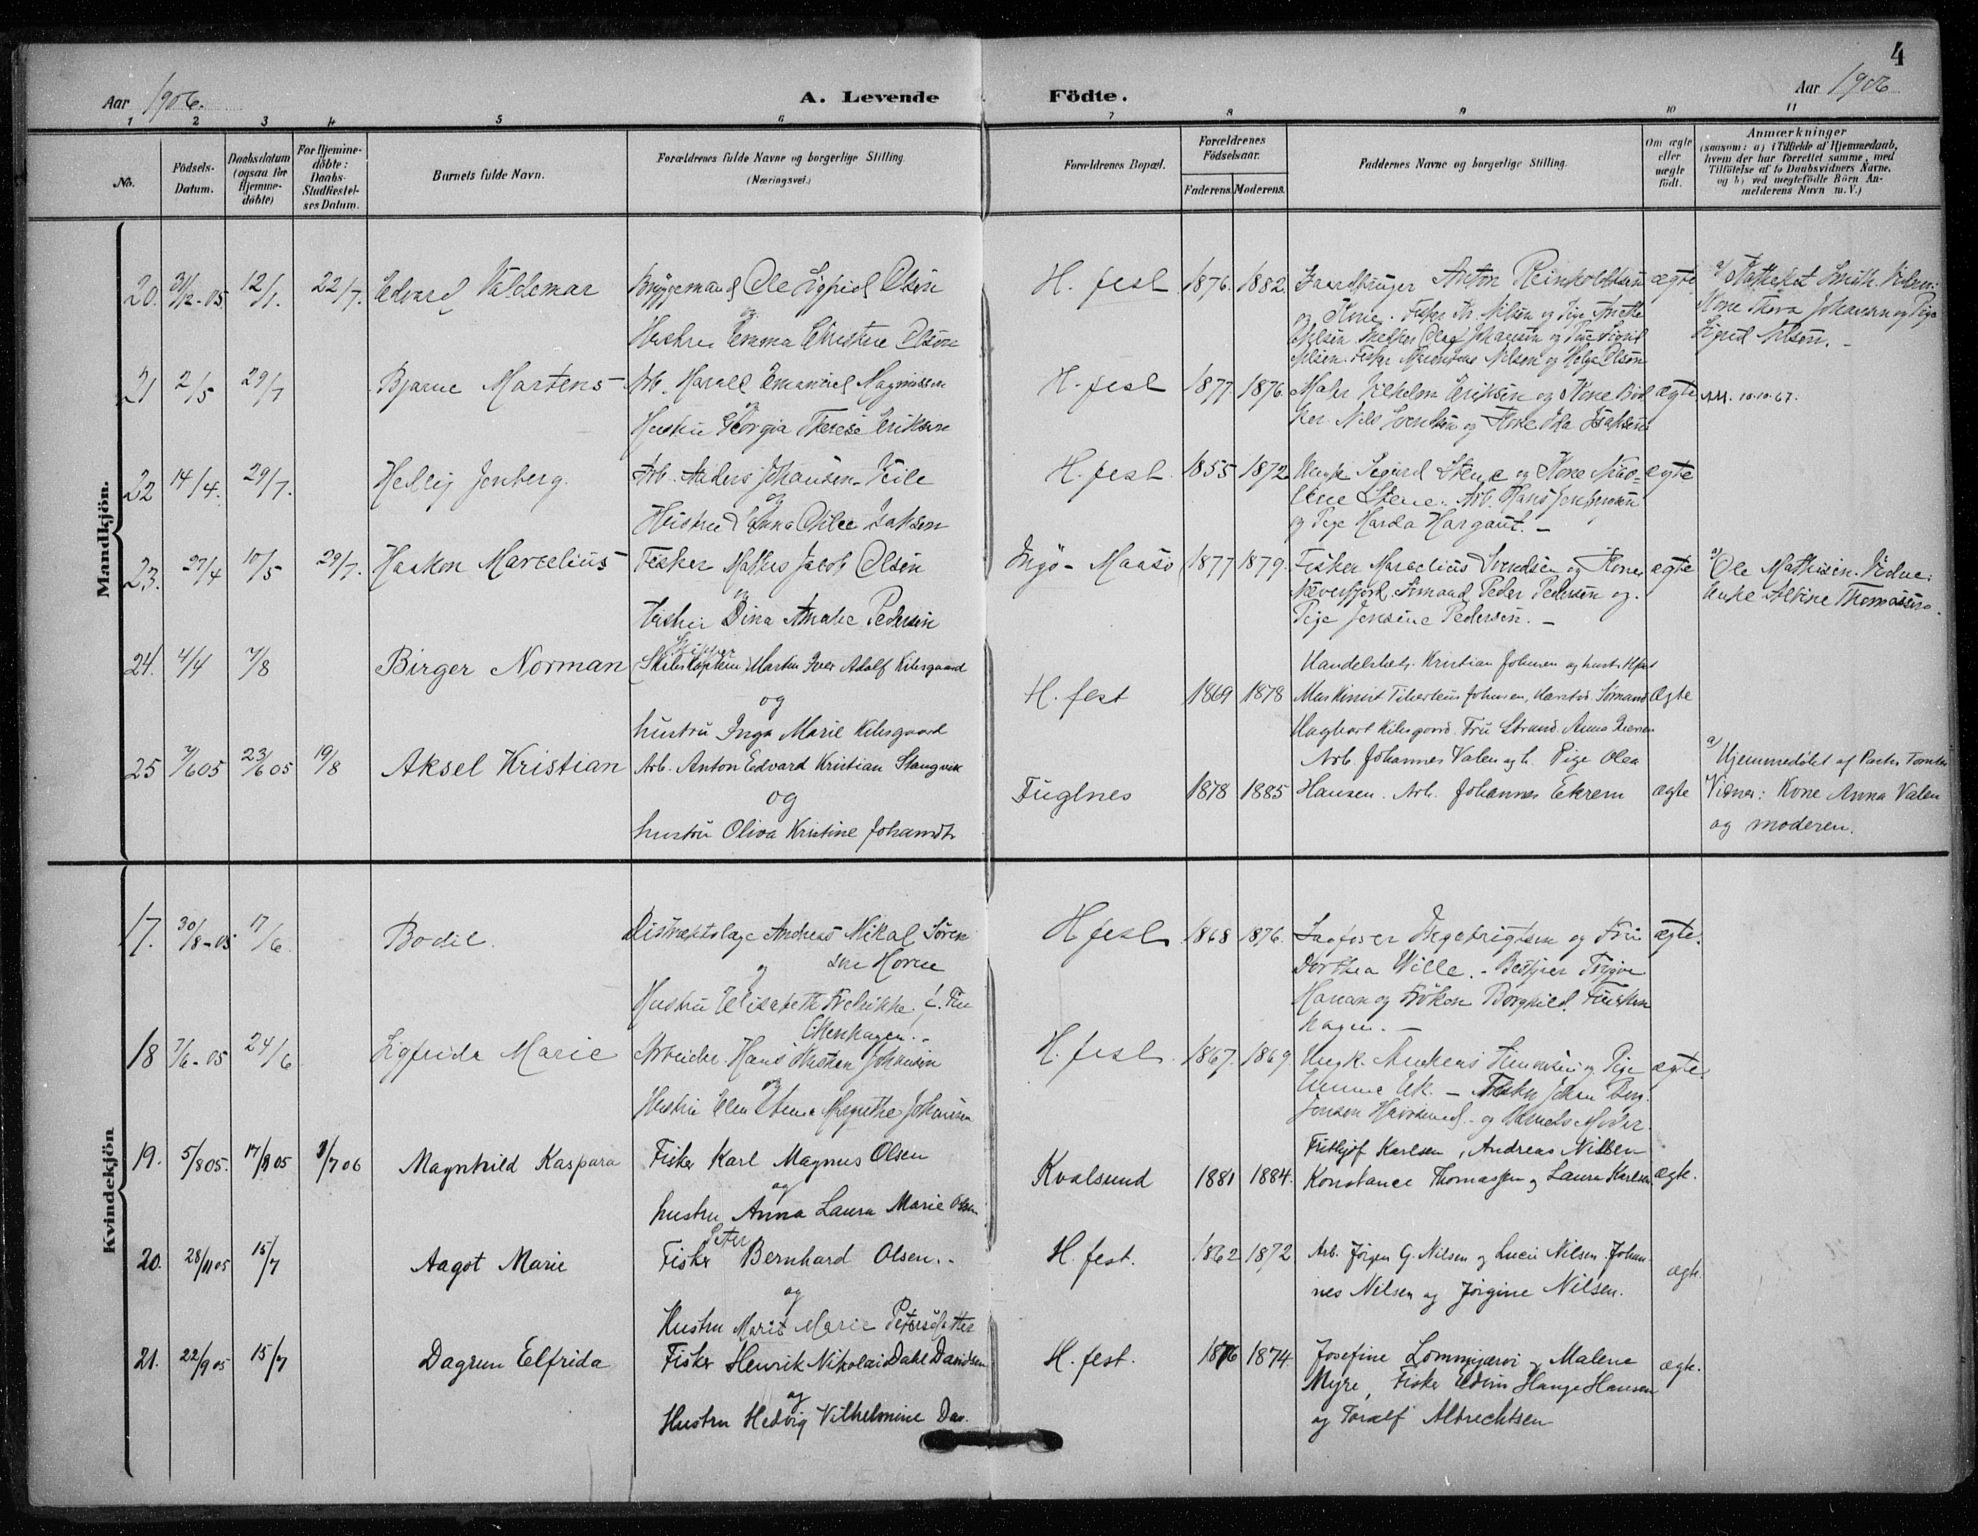 4
Aar 1906.
A. Levende Födte.
Aar 1906
1 2 3 4 5 6 7 8 9 10 11
No.
Födsels-Datum.
Daabsdatum (ogsaa for Hjemme-döbte)
For Hjemme-döbte: Daabs-Stadfæstel-ses Datum.
Barnets fulde Navn.
Forældrenes fulde Navne og borgerlige Stilling. (Næringsvei.)
Forældrenes Bopæl.
Forældrenes Födselsaar.
Faderens. Moderens.
Faddernes Navne og borgerlige Stilling.
Om ægte eller uægte födt.
Anmærkninger
(saasom: a) i Tilfælde af Hjemmedaab, hvem der har forrettet samme, med Tilföielse af to Daabsvidners Navne, og b) ved uegtefödte Börn An-melderens Navn m. V.)
Mandkjön.
20. 31/12-05 12/1. 22/7. Edvard Valdemar
Bryggemand Ole Sigfred Olsen
og
Hustru Emma Christine Olsen
H. fest 1876. 1882.
Anton Reinholdtsen
og Kone. Fisker Kr. Nilsen og Pige Anette
Nilsen og Helga Olsen
ægte
a) Kateket Smith. Vidner:
Kone Thora Johansen og Pige
Sigrid Nilsen.
21 2/5 29/7 Bjarne Martens
Arb. Harald Emanuel Magnussen
og
Hustru Georgia Therese Eriksen
H. fest 1877. 1876.
Maler Vilhelm Eriksen og Kone
Nils Svendsen og Kone Ida Isaksen
ægte
10.10.67.
22 14/4. 29/7. Hedley Jenberg.
Arb. Anders Johansen Veile
og
Hustru Anna Oilee Isaksen
H. fest. 1855 1872
Ungk. Sigurd Stene og Kone
Stene. Arb. Hans
og Pige Harda Hargaut. —
ægte
23. 27/4 10/5 29/7. Haakon Marcelius
Fisker Mathis Jacob Olsen
og
Hustru Dina Amalie Pedersen
Ingö - Maasö 1877 1879.
Fisker Maradius Svendsen og Kone
Næverfjord. Sömand Peder Pedersen og
Pige Jensine Pedersen. —
ægte
a) Ole Mathisen. Vidne:
Enke Albine Thomassen.
24. 4/4 7/8 Birger Norman
Skipper
Skibskaptein Martin Iver Adolf Kilsgaard
og
hustru Inga Marie Kilsgaard
H. fest 1869 1878
Handelsbet. Kristian Johnsen og hustr. Hfest
Maskinist Tiberteus Johnsen, Harstad. Sömand
Haghart Kilsgaard. Fru Strand. Anna
ægte
25 7/6 05 23/6 05 19/8 Aksel Kristian
Arb. Anton Edvard Kristian Stangvik
og
hustru Oliva Kristine Johansdtr
Fuglnes 1878 1885
Arb. Johannes Valen og h. Pige Olea
Hansen. Arb. Johannes Ekrem
ægte
a) Hjemmedøbt af Pastor
Vidner: Kone Anna Valen
og moderen.
Kvindekjön
17. 30/8-05. 17/6. Bodil.
Distriktslæge Andreas Nikal Sören
sen Horne
og
Hustru Elisabeth Fredrikke
H fest 1868 1876.
Sagförer Ingebrigtsen og Fru
Dorthea Wille. - Bestyrer Trygve
Hanan og Fröken Borghild
hagen. —
ægte.
18 7/6-05 24/6 Sigfrida Marie
Arbeider Hans Johansen
og
Hustru Elen Anna Margrethe Johansen
H. fest. 1867. 1869
Ungk. Andreas Simonsen og Pige
Emma Eik. — Fisker Johan Ben-
jonsen og Barnets Moder.
ægte.
19. 5/8 05. 17/9 05 8/7 06 Magnhild Kaspara
Fisker Karl Magnus Olsen
og
hustru Anna Laura Marie Olsen
Kvalsund 1881 1884.
Fridtjof Karlsen, Andreas Nilsen
Konstance Thomassen og Laura Karlsen
ægte.
20. 28/11 05 15/7 Aagot Marie
Peter
Fisker Bernhard Olsen.
og
Hustru Marit Marie Petersdatter
H. fest. 1862 1872
Arb. Jörgen G. Nilsen og Lucie Nilsen. Johan
nes Nilsen og Jörgine Nilsen.
ægte.
21. 22/9 05 15/7 Dagrun Elfrida
Fisker Henrik Nikolai Dahl Davidsen
og
Hustru Hedvig Vilhelmine Dav.
H. fest. 1876 1874
Josefine Lommijærvi og Malene
Myre, Fisker Edvin Hauge Hansen
og Toralf Albrechtsen
ægte.